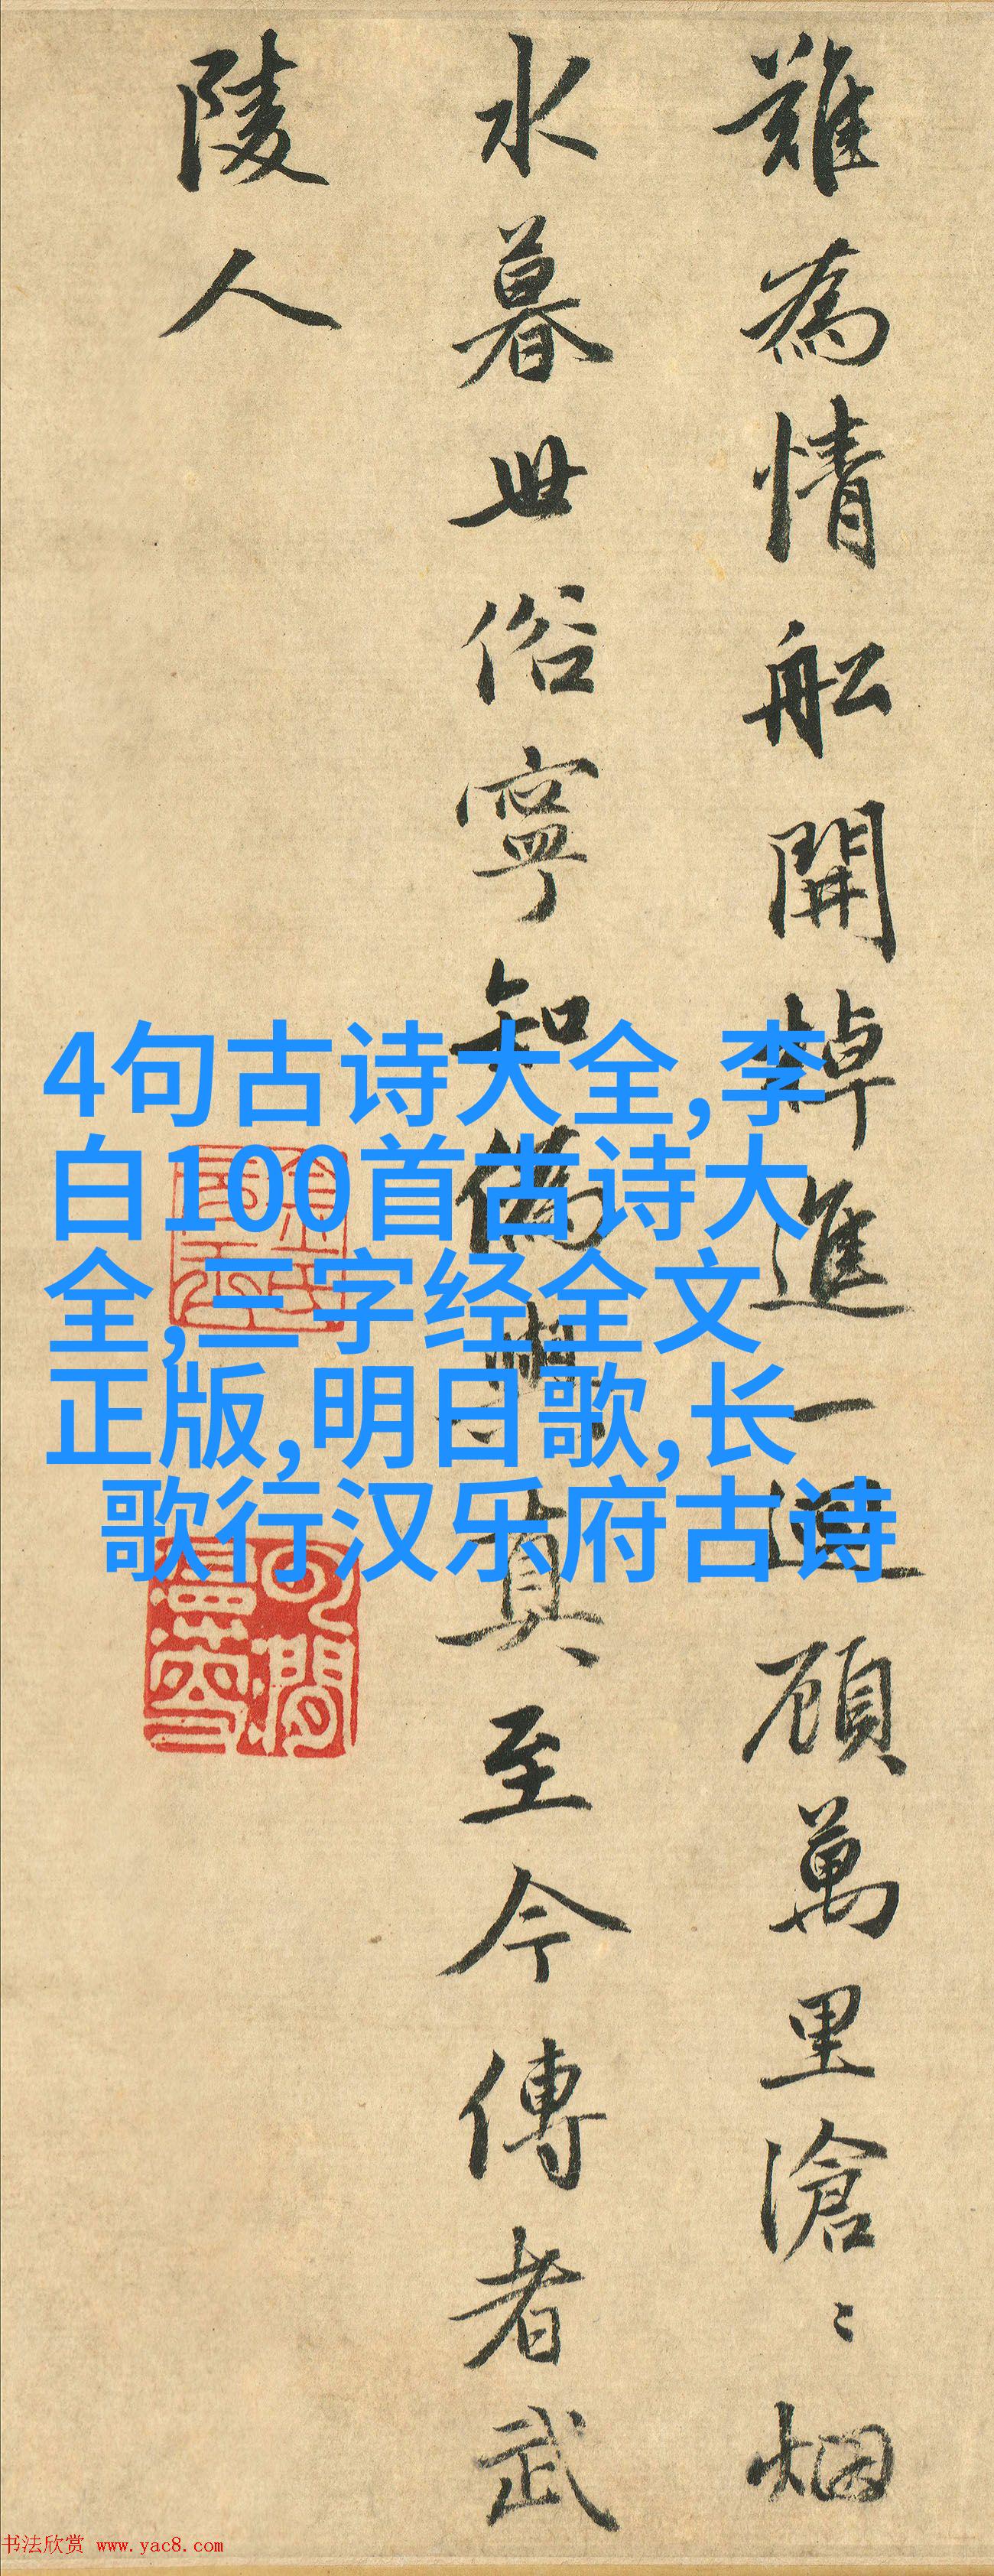 難為情舩開棹進一迴顧萬里滄〻烟
水暮世俗寧知偽與真至今傳者武
陵人
4句古诗大全,李
白100首古诗大
全,三字经全文
正版,明日歌,长
歌行汉乐府古诗
书法欣赏 www.yac8.com